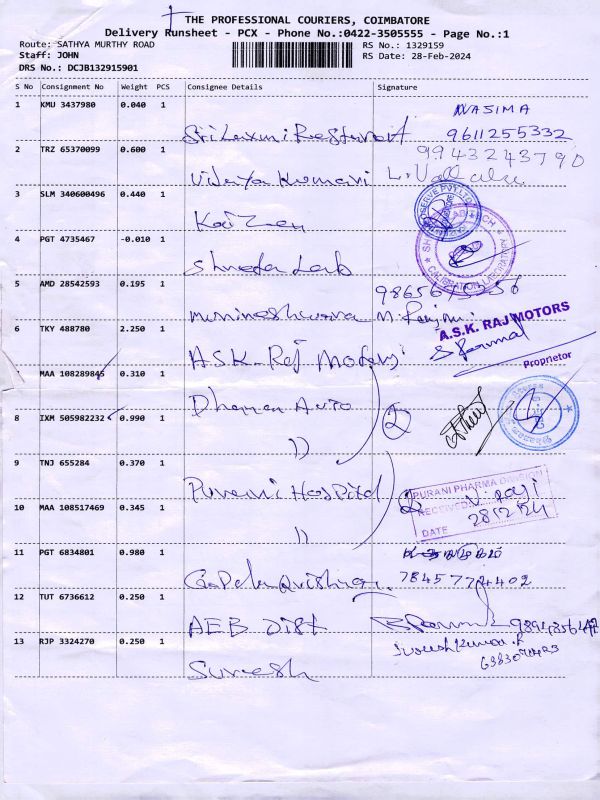 THE PROFESSIONAL COURIERS, COIMBATORE
Delivery Runsheet - PCX - Phone No.:0422-3505555 - Page No.:1
Route: SATHYA MURTHY ROAD
RS No.: 1329159
Staff: JOHN
RS Date: 28-Feb-2024
DRS No.: DCJB132915901
S No Consignment No Weight PCS Consignee Details Signature
1 KMU 3437980 0.040 1
NASIMA
Sri Laxmi Resturant 9611255332
2 TRZ 65370099 0.600 1
9943243790
Vijaya Kumari
3 SLM 340600496 0.440 1
Kaizen
4 PGT 4735467 -0.010 1
Shweta Lab
CALIBRATION
5 AMD 28542593 0.195 1
Munineshwara
6 TKY 488780 2.250 1
A.S.K. RAJ MOTORS
Proprietor
A.S.K. Raj Motors
MAA 108289845 0.310 1
Dharan Auto
2
8 IXM 505982232 0.990 1
))
9 TNJ 655284 0.370 1
Purani Hospital
2
PURANI PHARMA DIVISION
RECEIVED
DATE 28/2/24
10 MAA 108517469 0.345 1
))
11 PGT 6834801 0.980 1
Gopala Krishnan
12 TUT 6736612 0.250 1
AEB Dist
13 RJP 3324270 0.250 1
Suresh